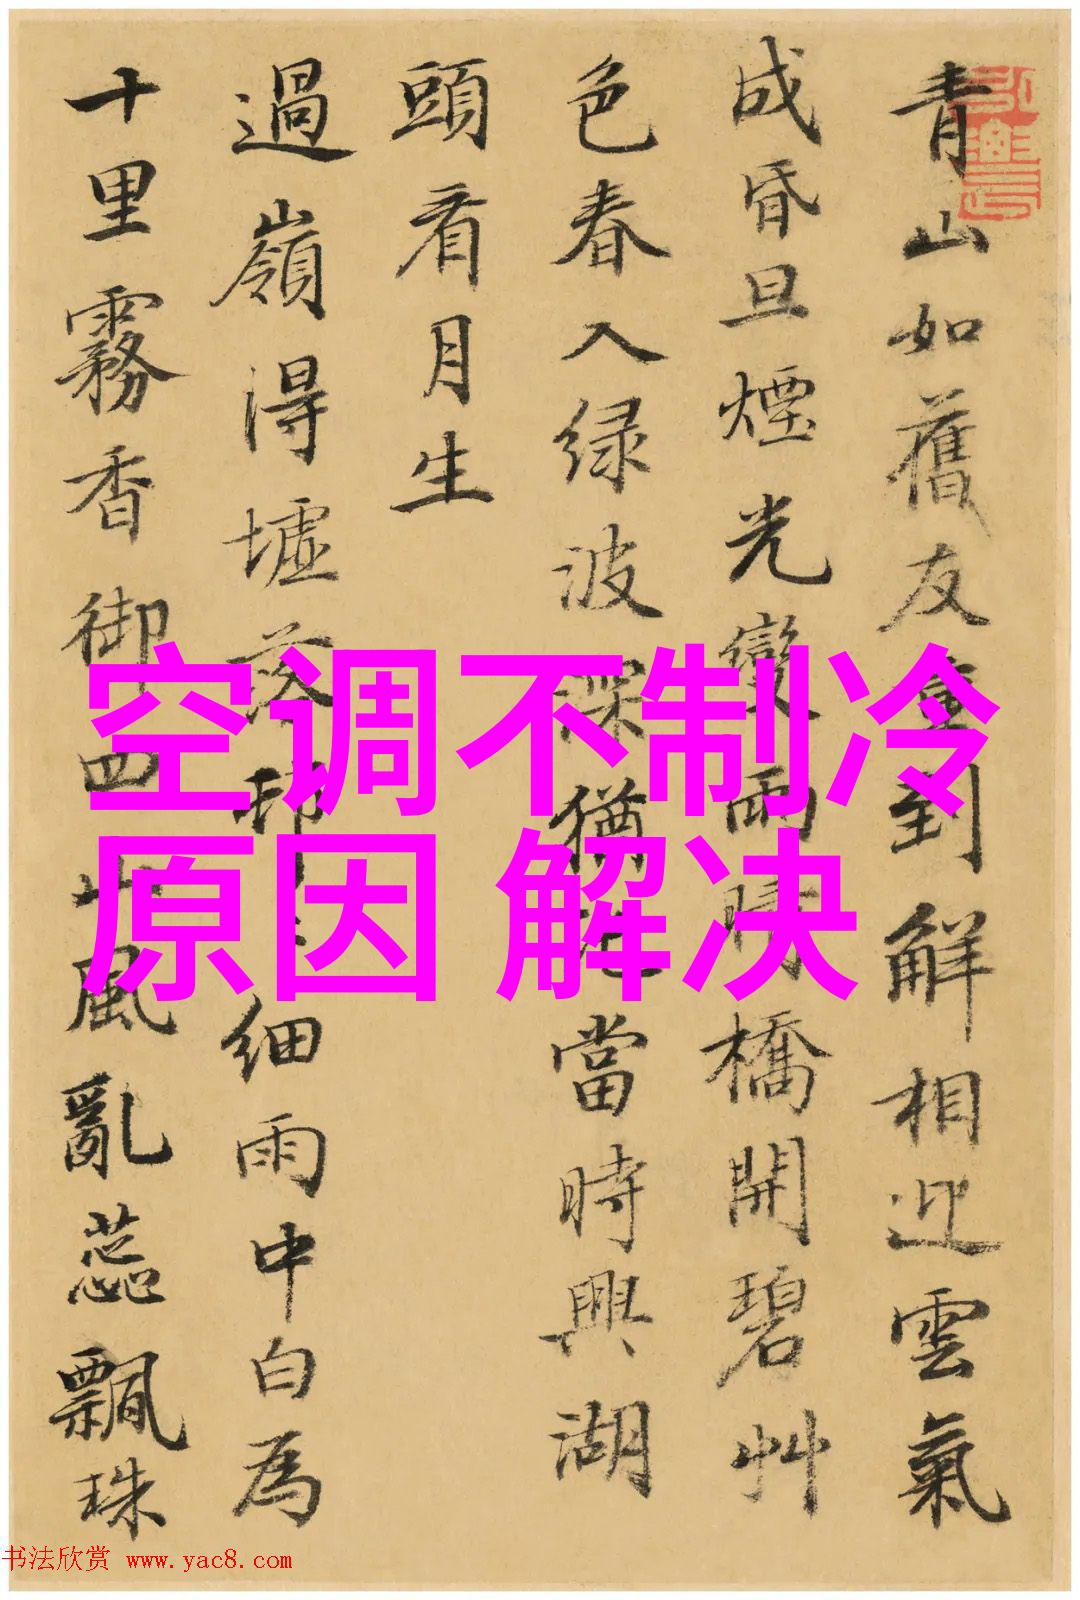 青山如舊友重到解相迎雲氣
成昏旦煙光變雨晴橋開碧艸
色春入绿波深猶當時興湖
頭看月生
過嶺得墟落邨細雨中白為
十里霧香御四山風亂蕊飄珠
空调不制冷
原因 解决
书法欣赏 www.yac8.com